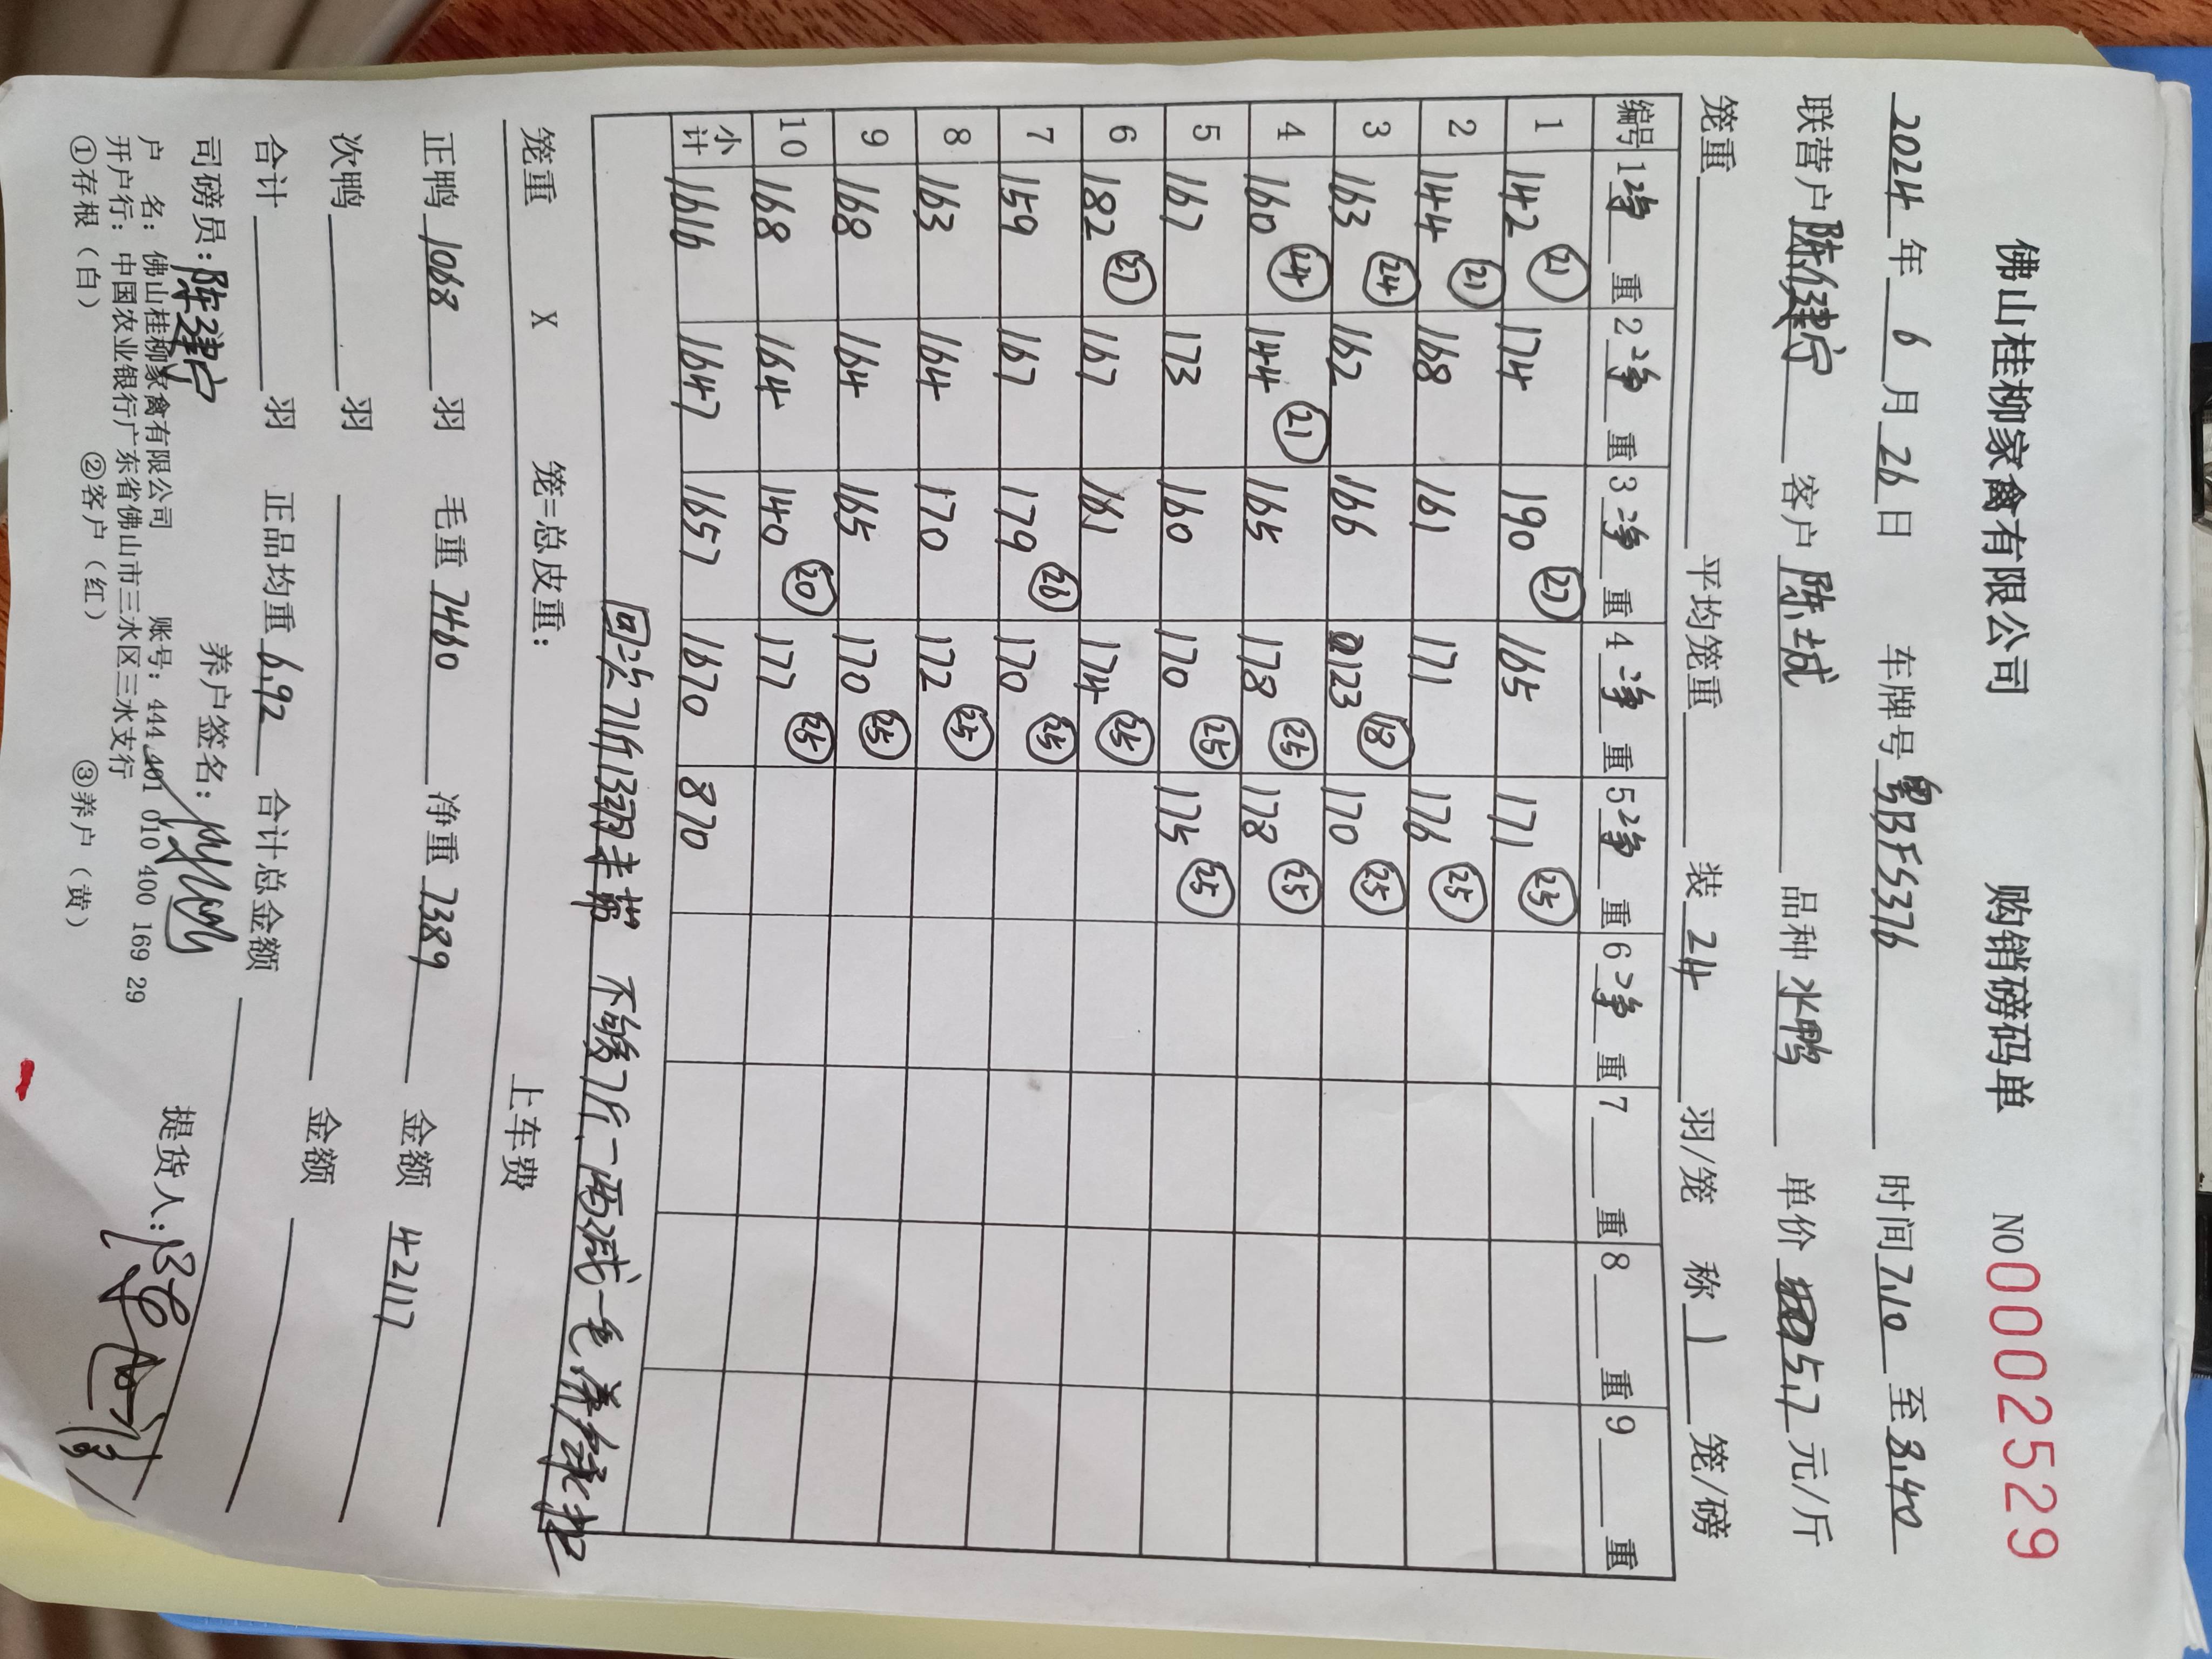 佛山桂柳家禽有限公司 购销磅码单 NO 00002529
2024年6月26日 车牌号粤BF5376 时间7.10至8.40
联营户陈健宁 客户陈城 品种水鸭 单价5.7元/斤
笼重 平均笼重 装24羽/笼 称1笼/磅
编号 1净重 2净重 3净重 4净重 5净重 6净重 7重 8重 9重
1 142 ㉑ 174 190 ㉗ 165 171 ㉕
2 144 ㉑ 168 161 171 176 ㉕
3 163 ㉔ 162 166 123 ⑱ 170 ㉕
4 160 ㉔ 144 ㉑ 165 178 ㉕ 178 ㉕
5 167 173 160 170 ㉕ 175 ㉕
6 182 ㉗ 167 161 174 ㉕
7 159 167 179 ㉖ 170 ㉕
8 163 164 170 172 ㉕
9 168 164 165 170 ㉕
10 168 164 140 ⑳ 177 ㉕
小计 1616 1647 1657 1670 870
回 71斤 不够7斤一两减一毛
笼重 X 笼=总皮重: 上车费
正鸭1068羽 毛重7460 净重7389 金额42117
次鸭 羽 金额
合计 羽 正品均重6.92 合计总金额
司磅员:陈健宁 养户签名: 提货人:
户 名:佛山桂柳家禽有限公司 账号:444 401 010 400 169 29
开户行:中国农业银行广东省佛山市三水区三水支行
①存根(白) ②客户(红) ③养户(黄)